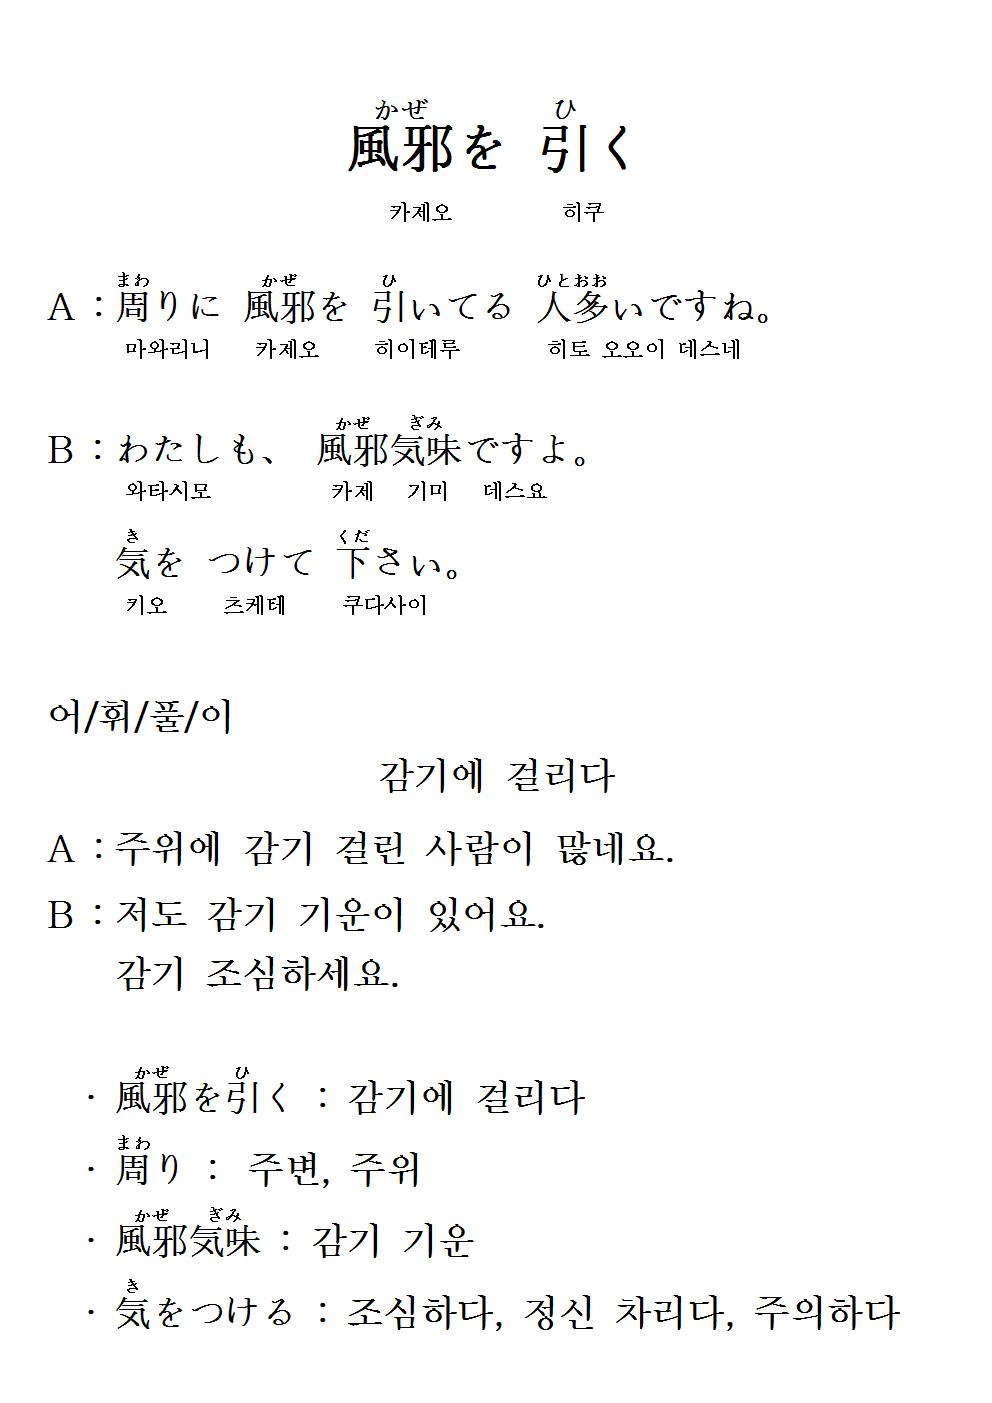 かぜ ひ
風邪を 引く
카제오 히쿠
まわ かぜ ひ ひとおお
A : 周りに 風邪を 引いてる 人多いですね。
마와리니 카제오 히이테루 히토 오오이 데스네
かぜ ぎみ
B : わたしも、 風邪気味ですよ。
와타시모 카제 기미 데스요
き くだ
気を つけて 下さい。
키오 츠케테 쿠다사이
어/휘/풀/이
감기에 걸리다
A : 주위에 감기 걸린 사람이 많네요.
B : 저도 감기 기운이 있어요.
감기 조심하세요.
かぜ ひ
· 風邪を引く : 감기에 걸리다
まわ
· 周り : 주변, 주위
かぜ ぎみ
· 風邪気味 : 감기 기운
き
· 気をつける : 조심하다, 정신 차리다, 주의하다